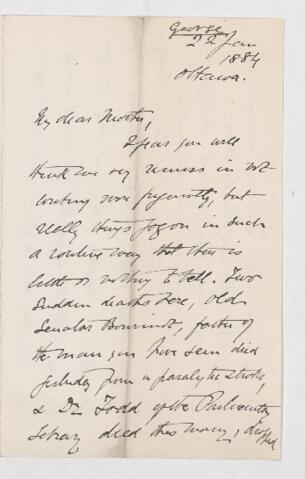 George
22 Jan
1884
Ottawa.
My dear Mother,
I fear you will
think me very remiss in not
writing more frequently, but
really things jog on in such
a routine way that there is
little or nothing to tell. Two
sudden deaths here, old
Senator Bourinot, father of
the man you have seen died
yesterday from a paralytic stroke,
& Dr Todd of the Parliamentary
Library died this morng, dropped